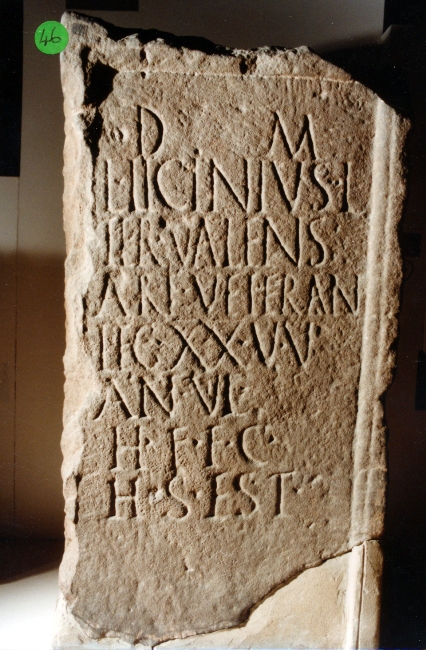 46
D M
L·LICINIVS·L
TER·VALENS
ARE·VETERAN
LEG·XX·VV
AN·VL
H·F·F·C·
H·S·EST